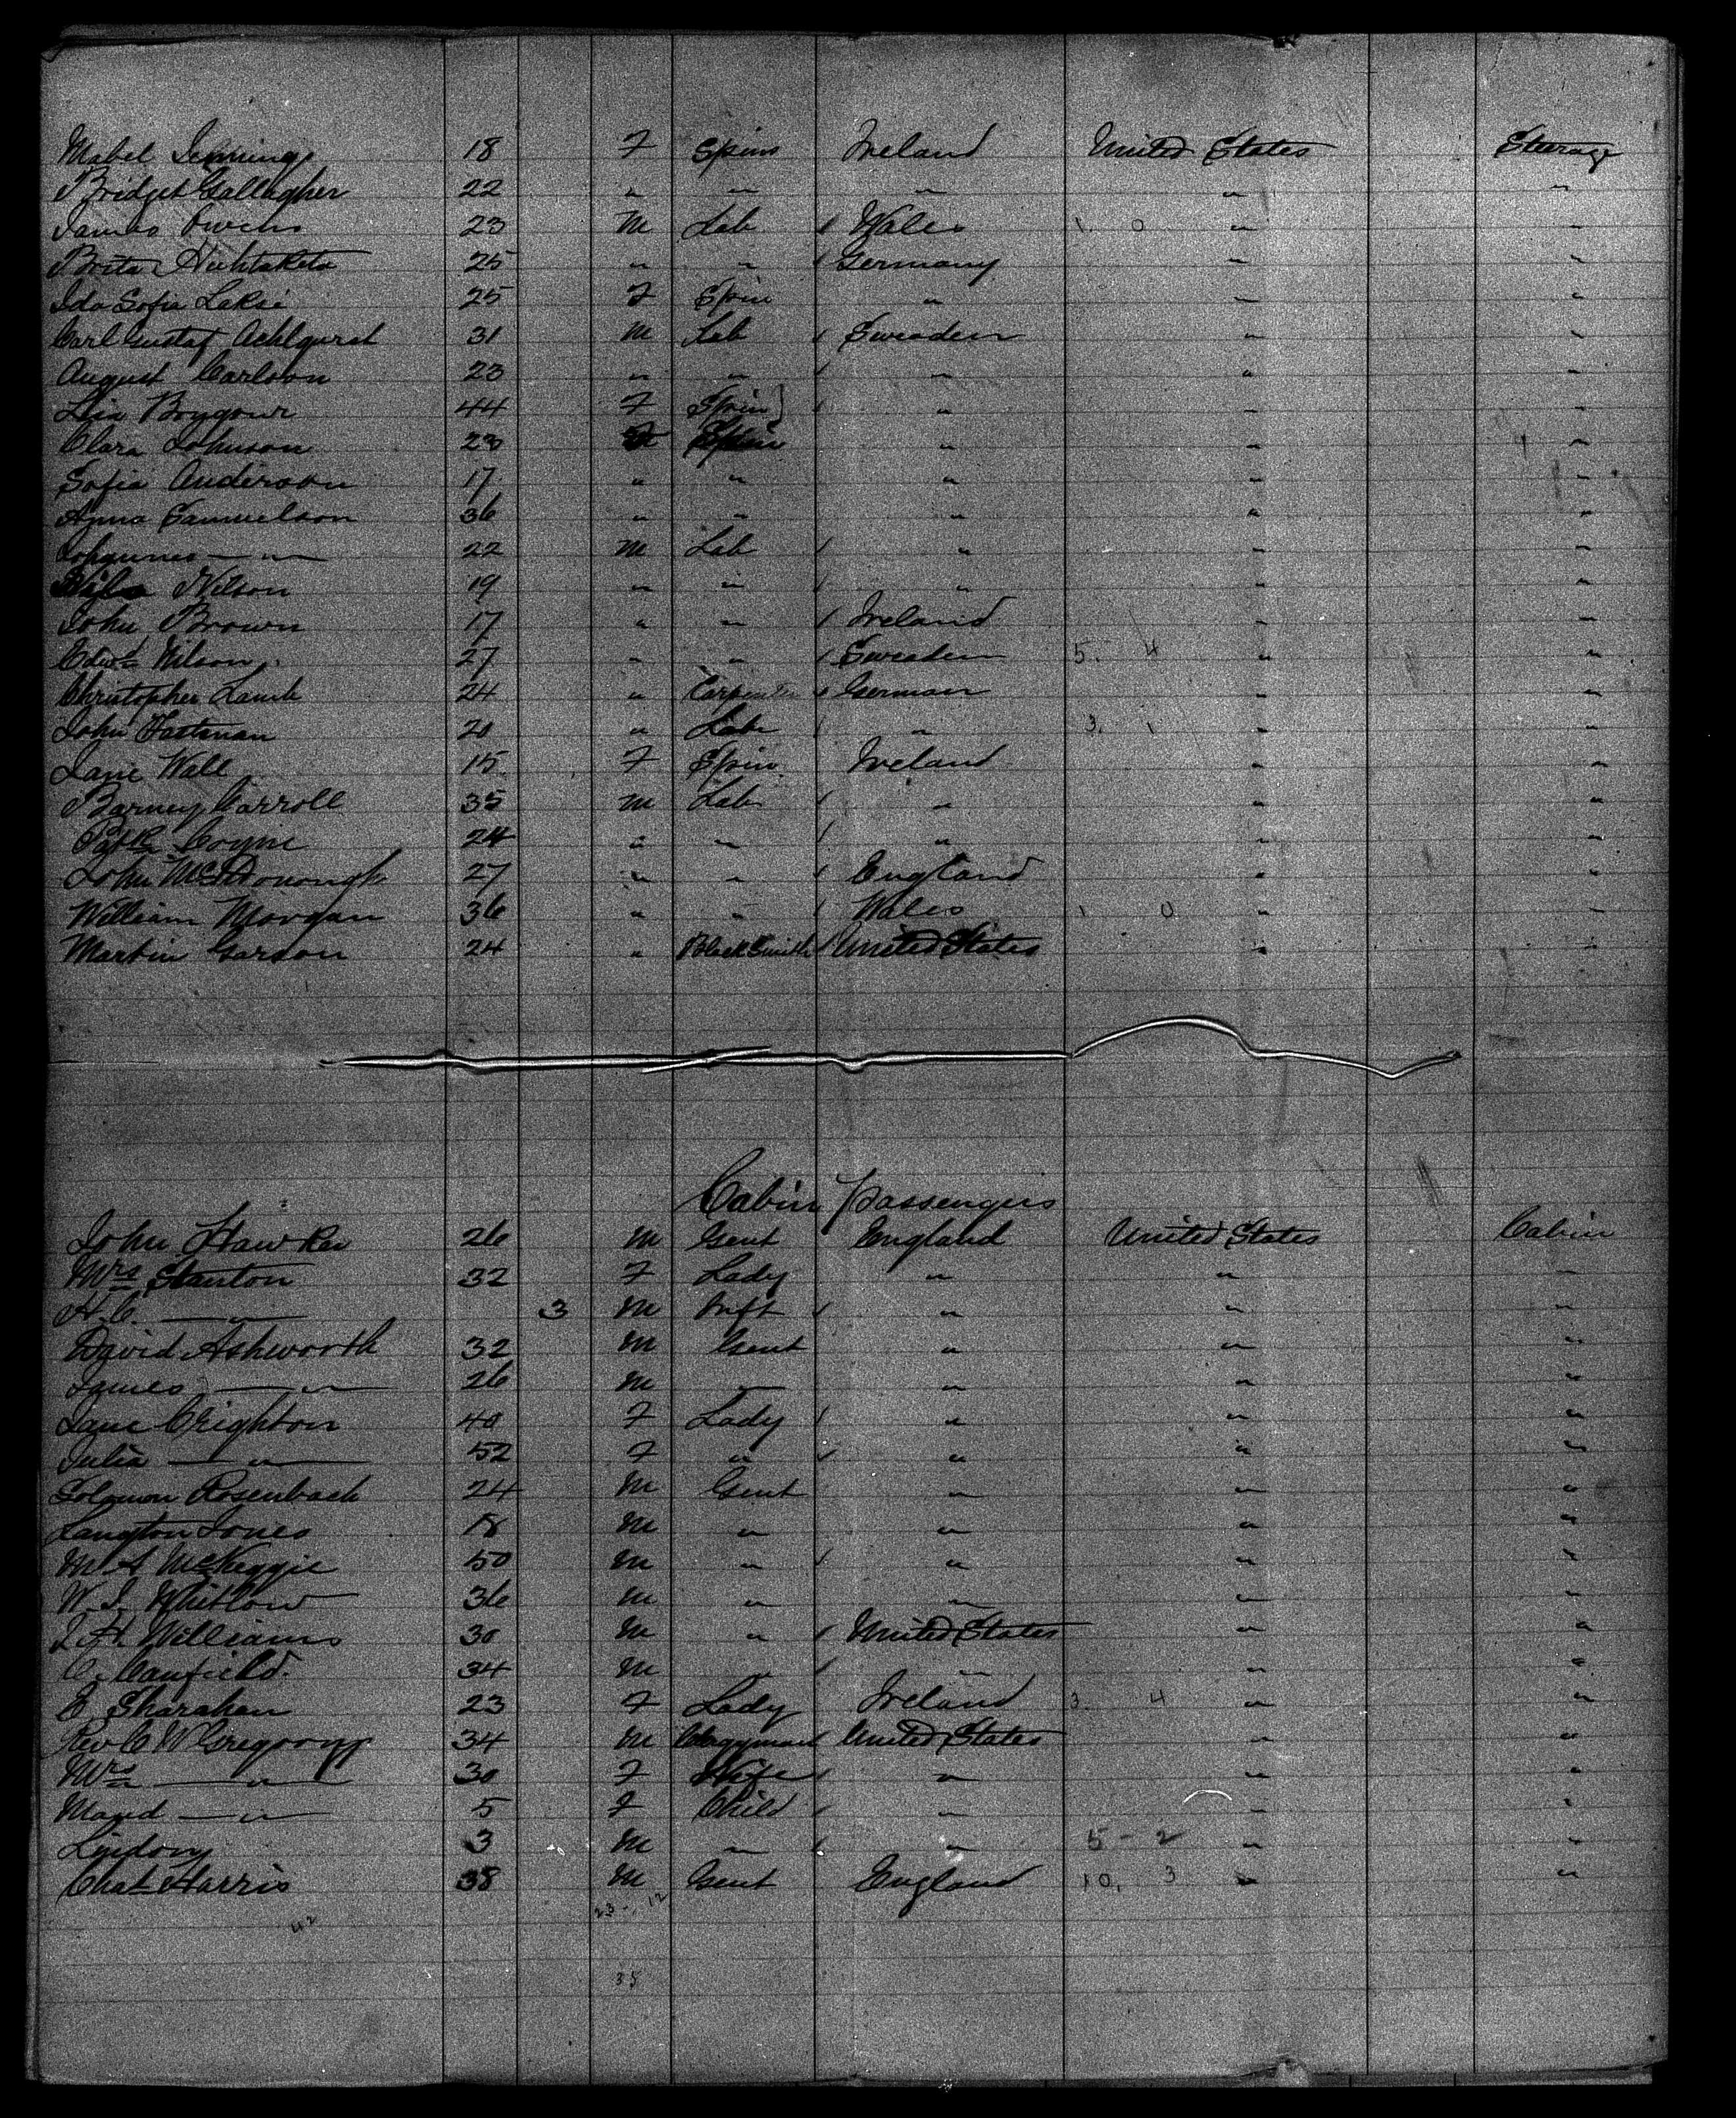 Mabel Jennings 18 F Spins Ireland United States Steerage
Bridget Gallagher 22 " " " " "
James Owens 23 M Lab Wales 1. 0 " "
Brita 25 " " Germany " "
Ida Sofia 25 F Spin " " "
Carl Gustaf 31 M Lab Sweaden " "
August Carlson 23 " " " " "
44 F Spin " " "
Clara Johnson 23 F Spin " " "
Sofia Anderson 17 " " " " "
Anna Samuelson 36 " " " " "
Johannes — " — 22 M Lab " " "
Nilson 19 " " " " "
John Brown 17 " " Ireland " "
Edwd Nilson 27 " " Sweaden 5. 4 " "
Christopher Lamb 24 " Carpenter German " "
John 20 " Lab " 3. 1 " "
Jane Wall 15 F Spin Ireland " "
Barney Carroll 35 M Lab " " "
Patk Coyne 24 " " " " "
John McDonough 27 " " England " "
William Morgan 36 " " Wales 1 0 " "
Martin Garson 24 " Black Smith United States " "
Cabin Passengers
John Hawker 26 M Gent England United States Cabin
Mrs Stanton 32 F Lady " " "
H.C. — " — 3 M Inft " " "
David Ashworth 32 M Gent " " "
James — " — 26 M " " " "
Jane Crighton 40 F Lady " " "
Julia — " — 52 F " " " "
Solomon Rosenbach 24 M Gent " " "
Langton Jones 18 M " " " "
M A McKeggie 50 M " " " "
W. J. Whitlow 36 M " " " "
J H Williams 30 M " United States " "
C. Canfield 34 M " " " "
E Sharahan 23 F Lady Ireland 3 4 " "
Rev C W Gregoory 34 M Clergyman United States " "
Mrs — " — 30 F Wife " " "
Maud — " — 5 F Child " " "
3 M " " 5 - 2 " "
Chas Harris 38 M Gent England 10, 3 " "
42 23 - 12
35